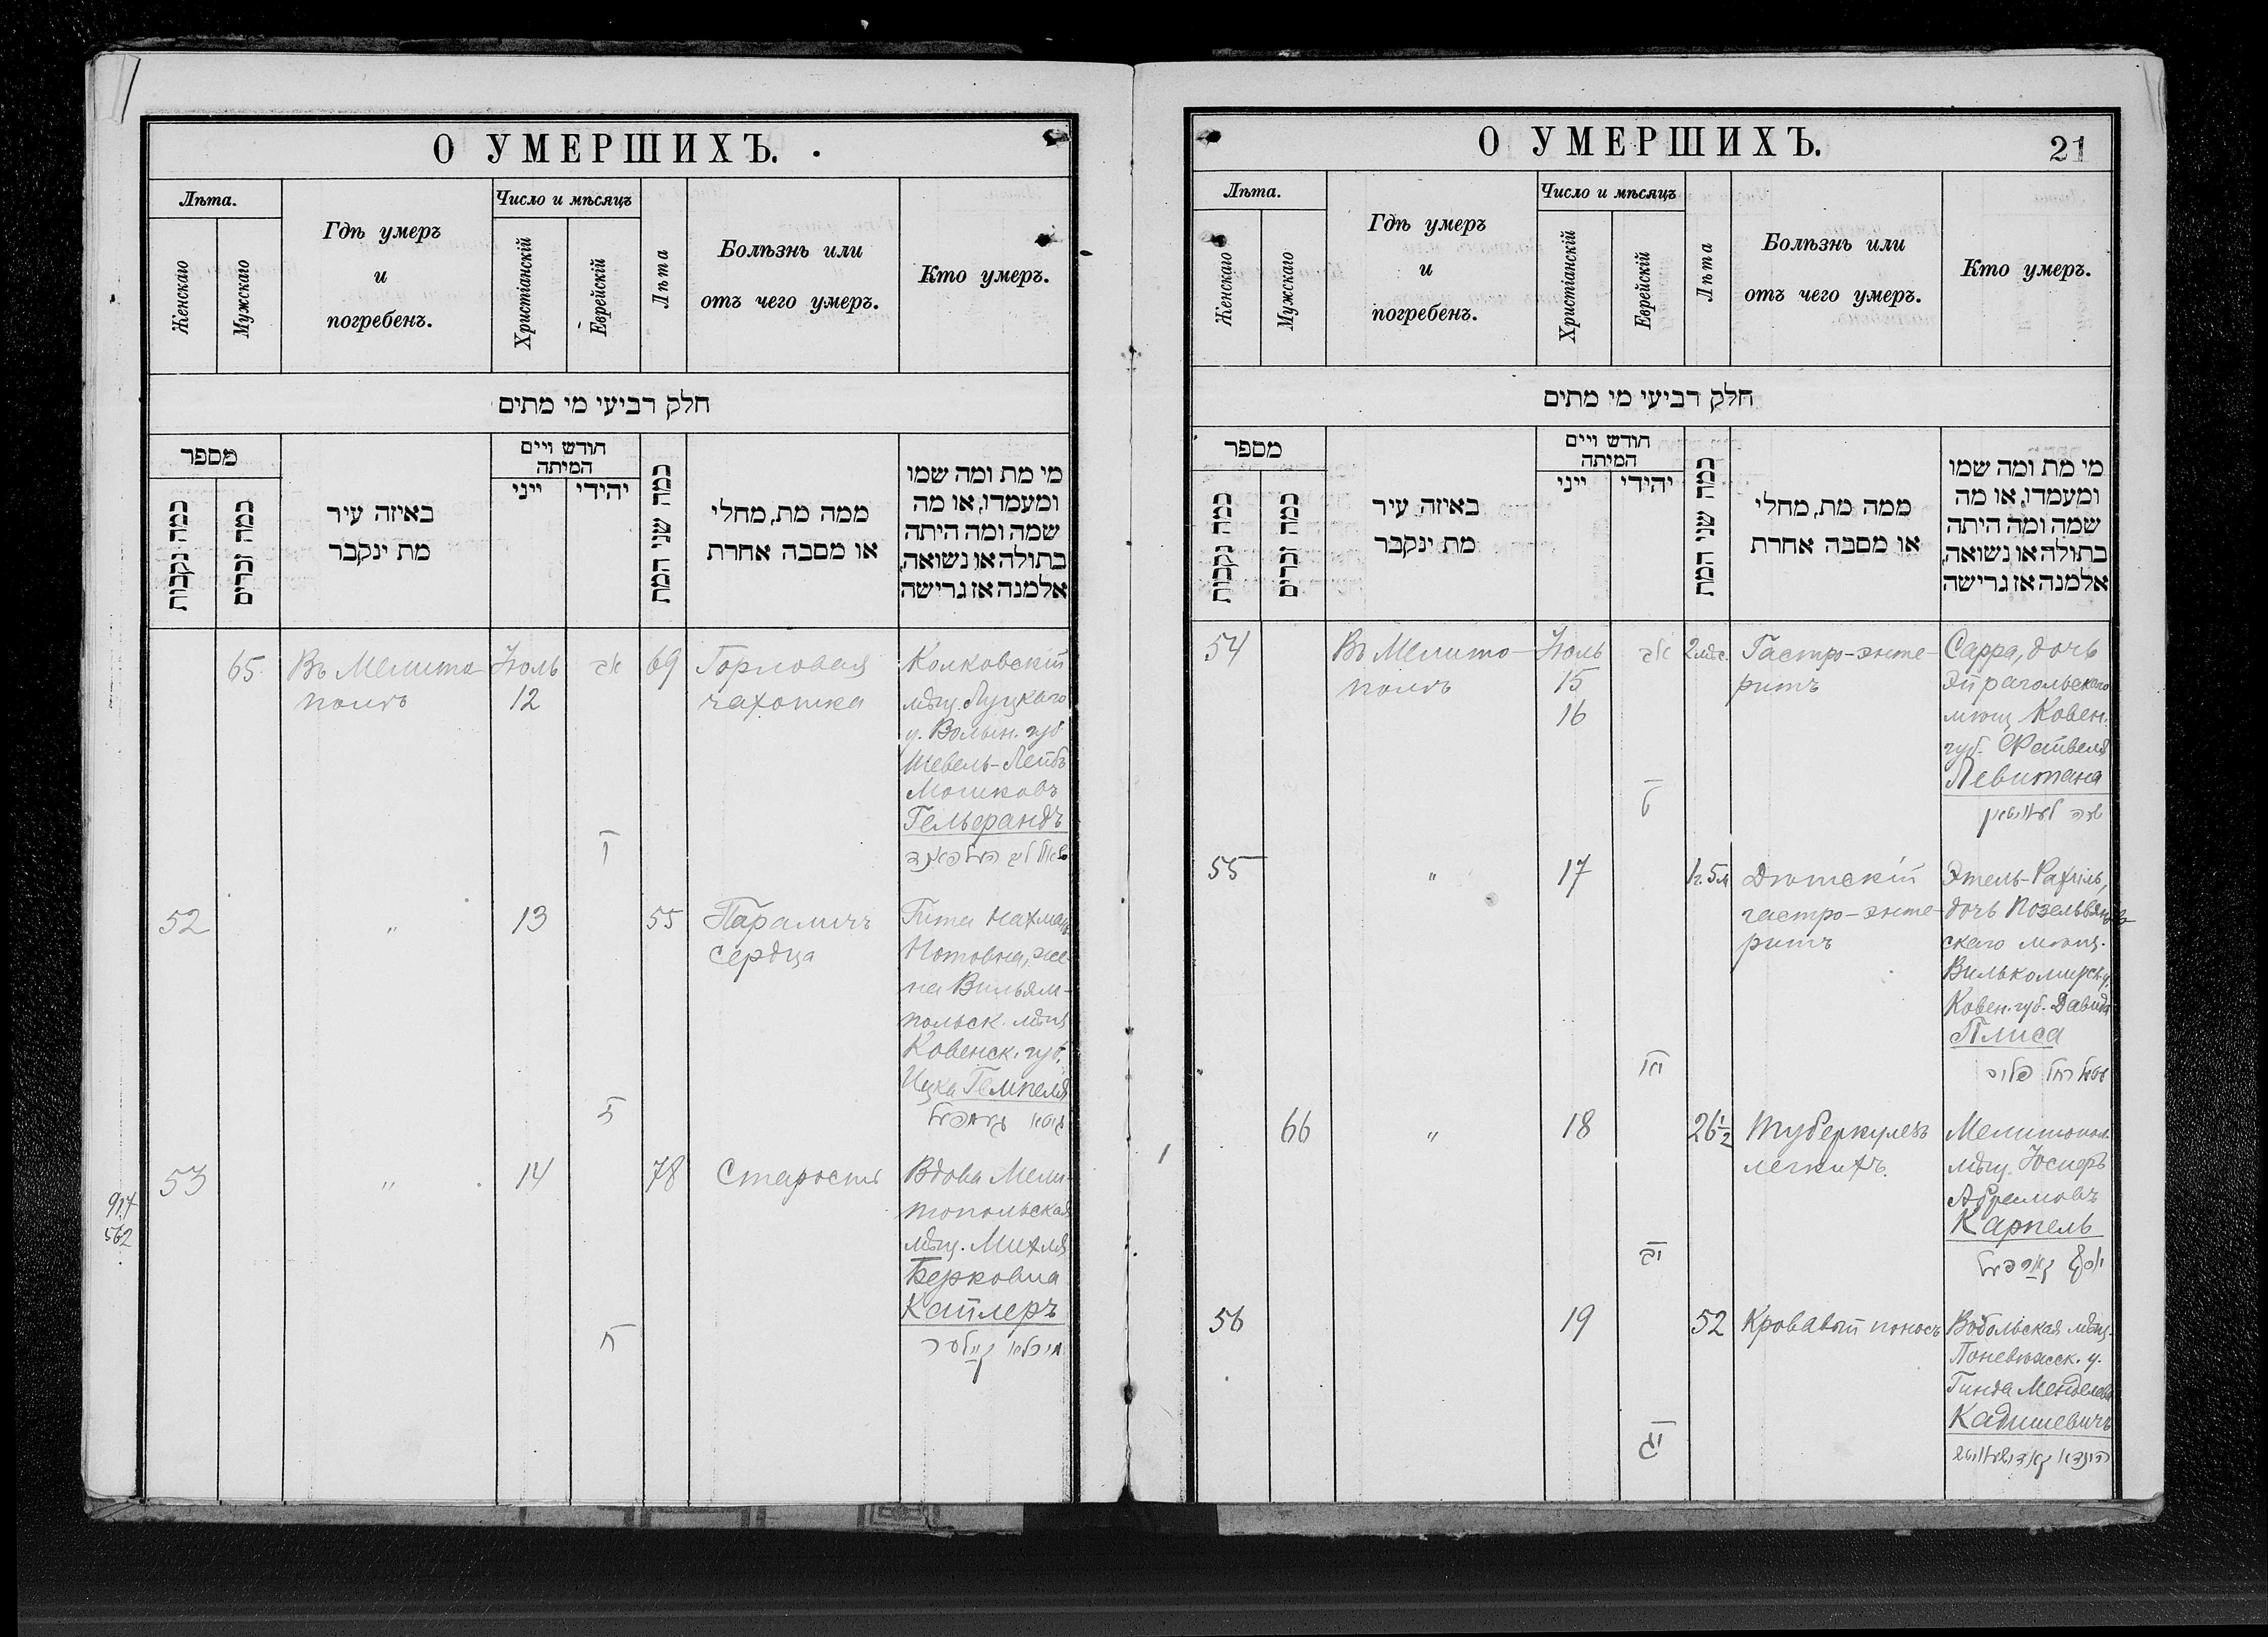 О УМЕРШИХЪ.
Лѣта.
Женскаго
Мужскаго
Гдѣ умеръ
и
погребенъ.
Число и мѣсяцъ
Христіанскій
Еврейскій
Лѣта
Болѣзнь или
отъ чего умеръ.
Кто умеръ.
חלק רביעי מי מתים
מספר
כמה נקבות
כמה זכרים
באיזה עיר
מת ינקבר
חודש ויים
המיתה
ייני
יהידי
כמה שני המת
ממה מת, מחלי
או מסבה אחרת
מי מת ומה שמו
ומעמדו, או מה
שמה ומה היתה
בתולה או נשואה,
אלמנה אז גרישה
65
Въ Мелито-
полѣ
Іюль
12
אב
ו
69
Горловая
чахотка
Колковскій
мѣщ. Луцкаго
у. Волын. губ
Шевель-Лейбъ
Мошковъ
Гельфандъ
52
"
13
ז
55
Параличъ
сердца
Гита Нахмань
Нотовна, же-
на Вильям-
польск. мѣщ
Ковенск. губ.
Ицка Гемпеля
גיטא געמפעל
53
"
14
ח
78
Старость
Вдова Мели-
топольская
мѣщ. Михля
Берковна
Кайлеръ
מיכלא קיילער
917
562
О УМЕРШИХЪ.
21
Лѣта.
Женскаго
Мужскаго
Гдѣ умеръ
и
погребенъ.
Число и мѣсяцъ
Христіанскій
Еврейскій
Лѣта
Болѣзнь или
отъ чего умеръ.
Кто умеръ.
חלק רביעי מי מתים
מספר
כמה נקבות
כמה זכרים
באיזה עיר
מת ינקבר
חודש ויים
המיתה
ייני
יהידי
כמה שני המת
ממה מת, מחלי
או מסבה אחרת
מי מת ומה שמו
ומעמדו, או מה
שמה ומה היתה
בתולה או נשואה,
אלמנה אז גרישה
54
Въ Мелито-
полѣ
Іюль
15
16
אב
ט
2 мѣс.
Гастро-энте-
ритъ
Сарра, дочь
Эйрагольскаго
мѣщ Ковен.
губ. Файвеля
Левитана
שרה לעוויטאן
55
"
17
יא
1г. 5м
Дѣтскій
гастро-энте-
ритъ
Этель-Рахиль,
дочь
скаго мѣщ.
Вилькомирск у.
Ковен. губ. Давида
Плиса
עטל רחל פליס
66
"
18
יב
26½
Туберкулезъ
легкихъ.
Мелитопол.
мѣщ. Іосифъ
Абрамовъ
Карпель
יוסף קארפעל
56
19
יג
52
Кровавый поносъ
Вобольская мѣщ.
Поневѣжск. у.
Гинда Менделева
Кадишевичъ
הינדא קאדישעוויטש